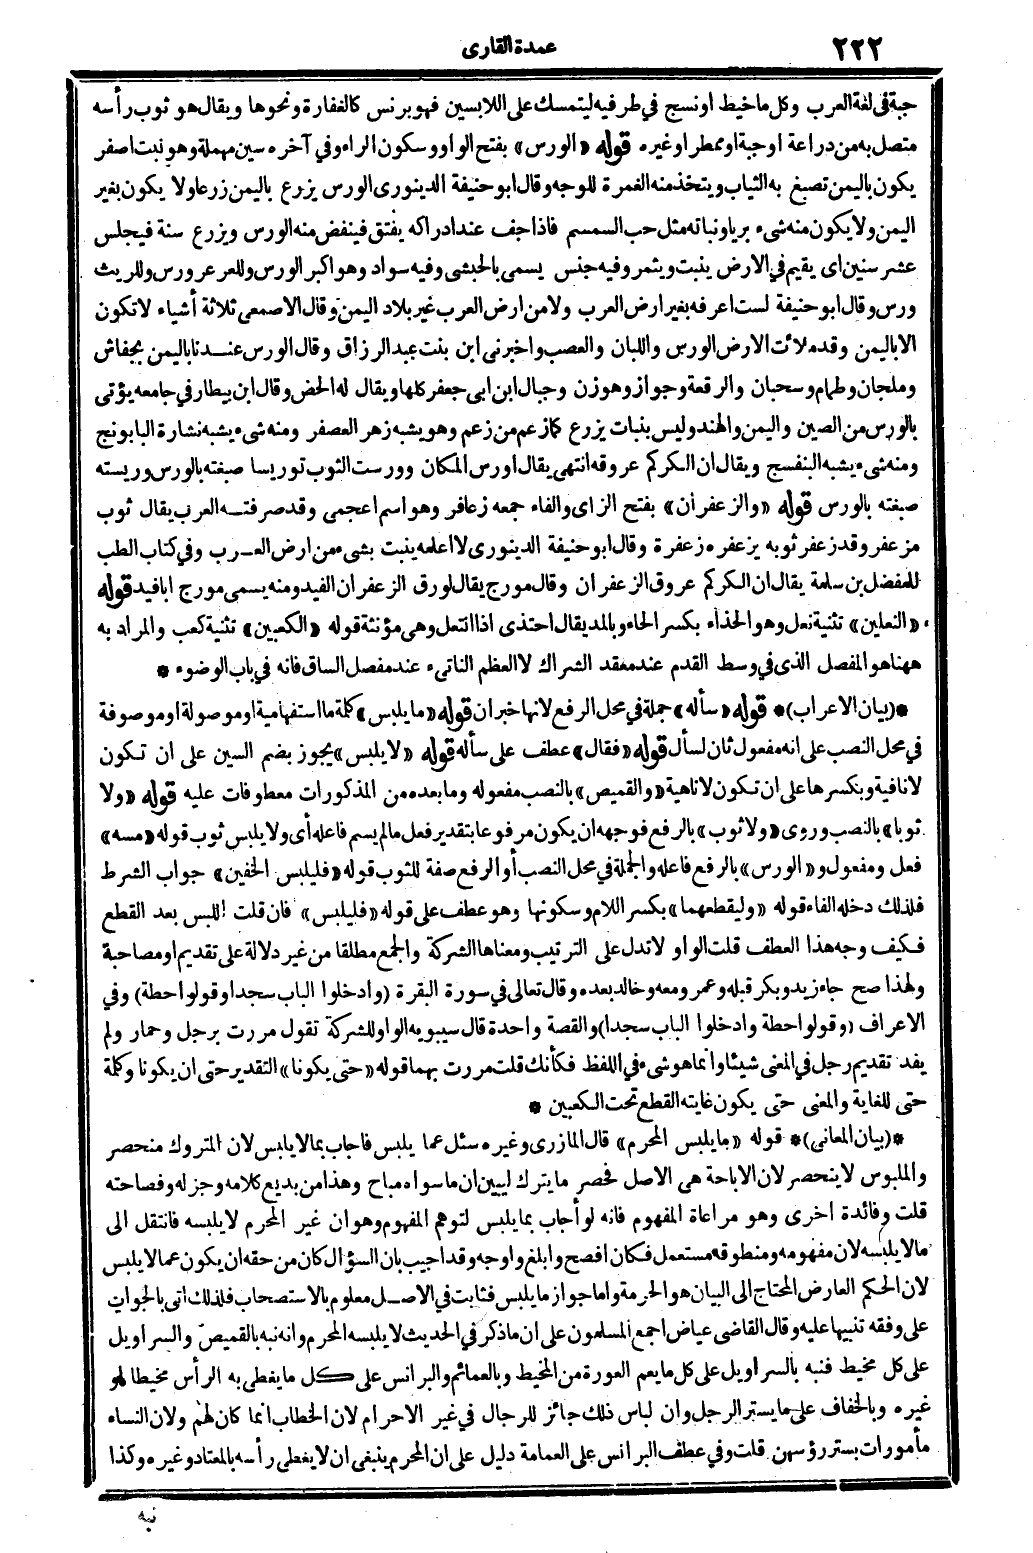 ٢٢٢
عمدة القارى
جبة فى لغة العرب وكل ما خيط او نسج في طرفيه ليتمسك على اللابسين فهو برنس كالغفارة ونحوها ويقال هو ثوب رأسه
متصل به من دراعة اوجبة او ممطر او غيره قوله «الورس» بفتح الواو وسكون الراء وفي آخره سين مهملة وهو نبت اصفر
يكون باليمن تصبغ به الثياب ويتخذ منه الغمرة للوجه وقال ابو حنيفة الدينورى الورس يزرع باليمن زرعا ولا يكون بغير
اليمن ولا يكون منه شىء بريا ونباته مثل حب السمسم فاذا جف عند ادراكه يفتق فينفض منه الورس ويزرع سنة فيجلس
عشر سنين اى يقيم في الارض ينبت ويثمر وفيه جنس يسمى بالحبشى وفيه سواد وهو اكبر الورس وللعرعر ورس وللريث
ورس وقال ابو حنيفة لست اعرفه بغير ارض العرب ولا من ارض العرب غير بلاد اليمن وقال الاصمعى ثلاثة أشياء لا تكون
الا باليمن وقد ملأت الارض الورس واللبان والعصب واخبرنى ابن بنت عبد الرزاق وقال الورس عندنا باليمن بجفاش
وملحان وطمام وسحبان والرقعة وجواز وهوزن وجبال ابن ابى جعفر كلها ويقال له الحض وقال ابن بيطار في جامعه يؤتى
بالورس من الصين واليمن والهند وليس بنبات يزرع كما زعم من زعم وهو يشبه زهر العصفر ومنه شىء يشبه نشارة البابونج
ومنه شىء يشبه البنفسج ويقال ان الكركم عروقه انتهى يقال اورس المكان وورست الثوب توريسا صبغته بالورس وريسته
صبغته بالورس قوله «والزعفران» بفتح الزاى والفاء جمعه زعافر وهو اسم اعجمى وقد صرفته العرب يقال ثوب
مزعفر وقد زعفر ثوبه يزعفره زعفرة وقال ابو حنيفة الدينورى لا اعلمه ينبت بشىء من ارض العرب وفي كتاب الطب
للمفضل بن سلمة يقال ان الكركم عروق الزعفران وقال مورج يقال لورق الزعفران الفيد ومنه يسمى مورج ابا فيد قوله
«النعلين» تثنية نعل وهو الحذاء بكسر الحاء وبالمد يقال احتذى اذا انتعل وهى مؤنثة قوله «الكعبين» تثنية كعب والمراد به
ههنا هو المفصل الذى في وسط القدم عند معقد الشراك لا العظم الناتىء عند مفصل الساق فانه في باب الوضوء *
*(بيان الاعراب)* قوله «سأله» جملة في محل الرفع لانها خبر ان قوله «ما يلبس» كلمة ما استفهامية او موصولة او موصوفة
في محل النصب على انه مفعول ثان لسأل قوله «فقال» عطف على سأله قوله «لا يلبس» يجوز بضم السين على ان تكون
لا نافية وبكسرها على ان تكون لا ناهية «والقميص» بالنصب مفعوله وما بعده من المذكورات معطوفات عليه قوله «ولا
ثوبا» بالنصب وروى «ولا ثوب» بالرفع فوجهه ان يكون مرفوعا بتقدير فعل ما لم يسم فاعله أى ولا يلبس ثوب قوله «مسه»
فعل ومفعول و«الورس» بالرفع فاعله والجملة في محل النصب أو الرفع صفة للثوب قوله «فليلبس الخفين» جواب الشرط
فلذلك دخله الفاء قوله «وليقطعهما» بكسر اللام وسكونها وهو عطف على قوله «فليلبس» فان قلت اللبس بعد القطع
فكيف وجه هذا العطف قلت الواو لا تدل على الترتيب ومعناها الشركة والجمع مطلقا من غير دلالة على تقديم او مصاحبة
ولهذا صح جاء زيد وبكر قبله وعمر ومعه وخالد بعده وقال تعالى في سورة البقرة (وادخلوا الباب سجدا وقولوا حطة) وفي
الاعراف (وقولوا حطة وادخلوا الباب سجدا) والقصة واحدة قال سيبويه الواو للشركة تقول مررت برجل وحمار ولم
يفد تقديم رجل في المعنى شيئا وانما هو شىء في اللفظ فكأنك قلت مررت بهما قوله «حتى يكونا» التقدير حتى ان يكونا وكلمة
حتى للغاية والمعنى حتى يكون غايته القطع تحت الكعبين *
*(بيان المعانى)* قوله «ما يلبس المحرم» قال المازرى وغيره سئل عما يلبس فاجاب بما لا يلبس لان المتروك منحصر
والملبوس لا ينحصر لان الاباحة هى الاصل فحصر ما يترك ليبين ان ما سواه مباح وهذا من بديع كلامه وجزله وفصاحته
قلت وفائدة اخرى وهو مراعاة المفهوم فانه لو أجاب بما يلبس لتوهم المفهوم وهو ان غير المحرم لا يلبسه فانتقل الى
ما لا يلبسه لان مفهومه ومنطوقه مستعمل فكان افصح وابلغ واوجه وقد اجيب بان السؤال كان من حقه ان يكون عما لا يلبس
لان الحكم العارض المحتاج الى البيان هو الحرمة واما جواز ما يلبس فثابت في الاصل معلوم بالاستصحاب فلذلك اتى بالجواب
على وفقه تنبيها عليه وقال القاضى عياض اجمع المسلمون على ان ما ذكر في الحديث لا يلبسه المحرم وانه نبه بالقميص والسراويل
على كل مخيط فنبه بالسراويل على كل ما يعم العورة من المخيط وبالعمائم والبرانس على كل ما يغطى به الرأس مخيطا او
غيره وبالخفاف على ما يستر الرجل وان لباس ذلك جائز للرجال في غير الاحرام لان الخطاب انما كان لهم ولان النساء
مأمورات بستر رؤسهن قلت وفي عطف البرانس على العمامة دليل على ان المحرم ينبغى ان لا يغطى رأسه بالمعتاد وغيره وكذا
نبه